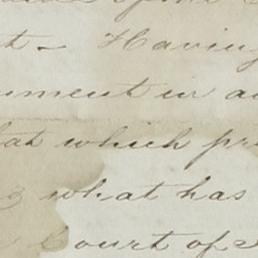 t - Having
ument in a
at which pr
what has
Court of